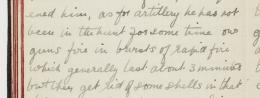 ened him, as for artillery he has not
been in the hunt for some time our
guns fire in bursts of rapid fire
which generally last about 3 minutes
but they get rid of some shells in that